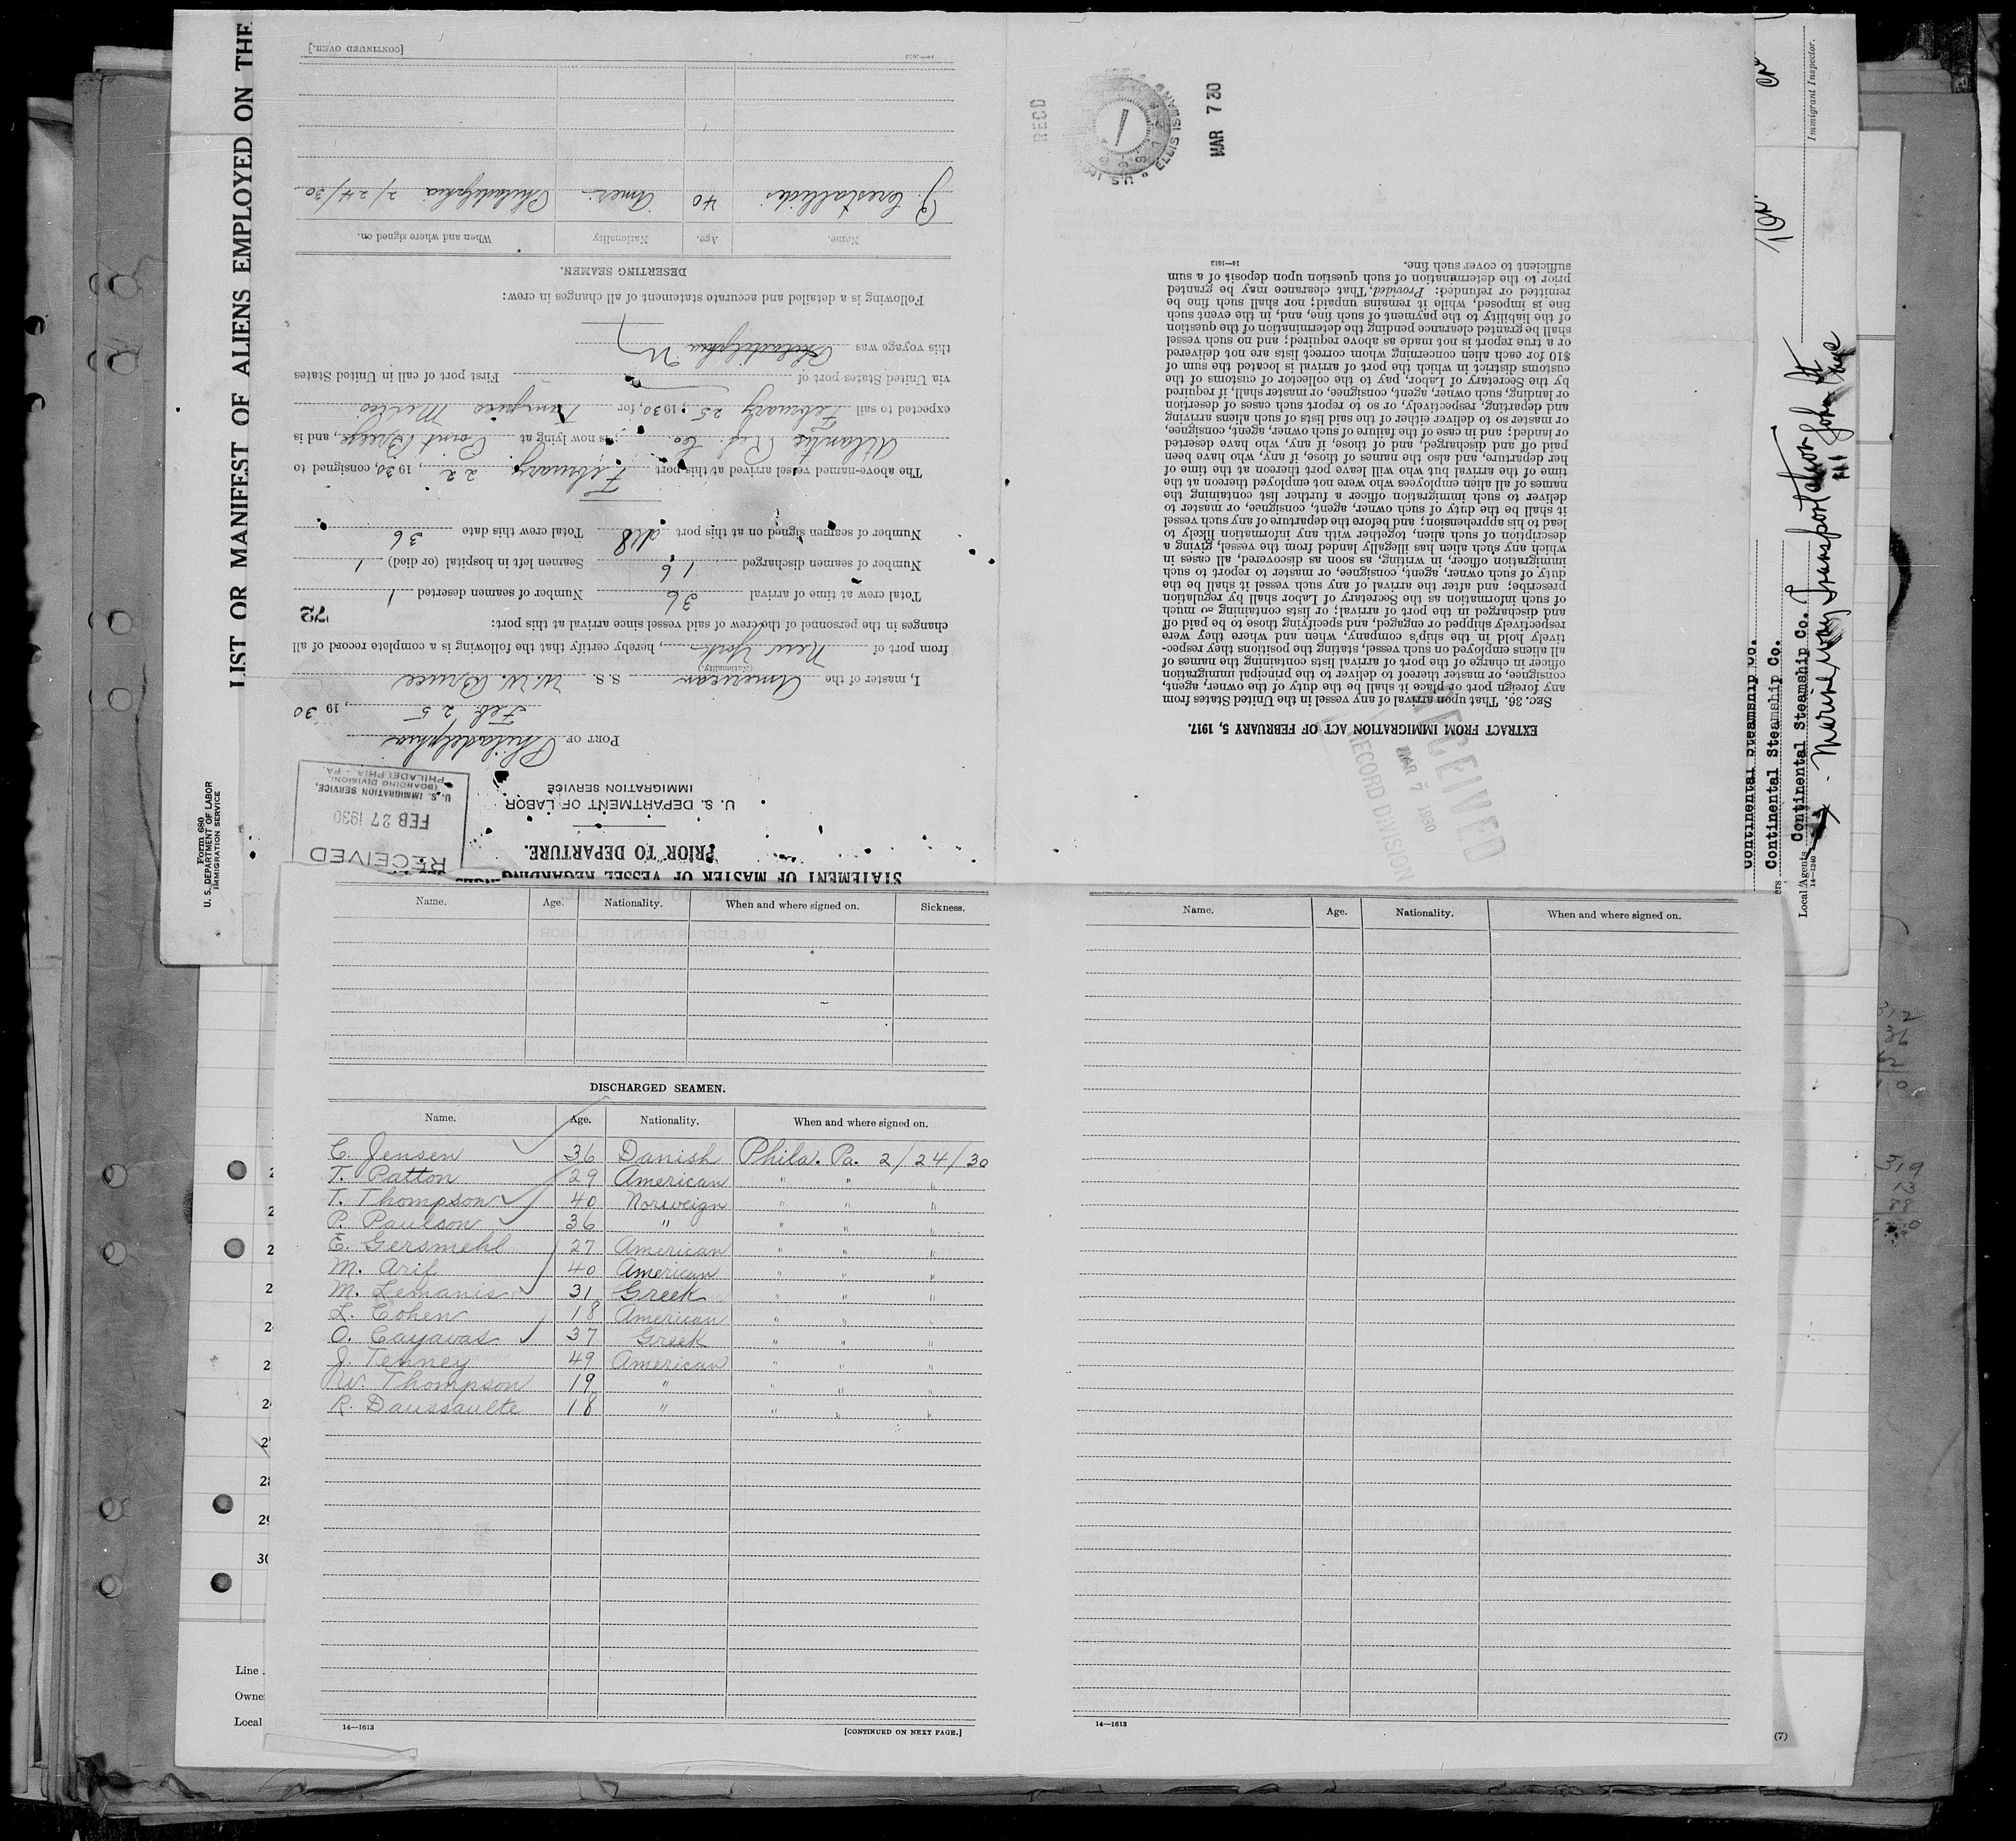 LIST OR MANIFEST OF ALIENS EMPLOYED ON THE
Form 680
U. S. DEPARTMENT OF LABOR
IMMIGRATION SERVICE
STATEMENT OF MASTER OF VESSEL REGARDING
PRIOR TO DEPARTURE.
U. S. DEPARTMENT OF LABOR
IMMIGRATION SERVICE
RECEIVED
FEB 27 1930
U. S. IMMIGRATION SERVICE,
(BOARDING DIVISION)
PHILADELPHIA - PA.
PORT OF Philadelphia
Feb. 25, 1930
I, master of the American S. S. W. W. Bruce
(Nationality)
from port of New York, hereby certify that the following is a complete record of all
changes in the personnel of the crew of said vessel since arrival at this port:
72
Total crew at time of arrival 36 Number of seamen deserted 1
Number of seamen discharged 16 Seamen left in hospital (or died) 1
Number of seamen signed on at this port 18 Total crew this date 36
The above-named vessel arrived at this port February 22, 1930, consigned to
Atlantic Ref. Co.; is now lying at Point Breeze, and is
expected to sail February 25, 1930, for Tampico Mexico
via United States port of First port of call in United States
this voyage was Philadelphia NY
Following is a detailed and accurate statement of all changes in crew:
DESERTING SEAMEN.
Name. Age. Nationality. When and where signed on.
J. Crestallides 40 Amer. Philadelphia 2/24/30
14—1613 [CONTINUED OVER.]
EXTRACT FROM IMMIGRATION ACT OF FEBRUARY 5, 1917.
SEC. 36. That upon arrival of any vessel in the United States from
any foreign port or place it shall be the duty of the owner, agent,
consignee, or master thereof to deliver to the principal immigration
officer in charge of the port of arrival lists containing the names of
all aliens employed on such vessel, stating the positions they respec-
tively hold in the ship's company, when and where they were
respectively shipped or engaged, and specifying those to be paid off
and discharged in the port of arrival; or lists containing so much
of such information as the Secretary of Labor shall by regulation
prescribe; and after the arrival of any such vessel it shall be the
duty of such owner, agent, consignee, or master to report to such
immigration officer, in writing, as soon as discovered, all cases in
which any such alien has illegally landed from the vessel, giving a
description of such alien, together with any information likely to
lead to his apprehension; and before the departure of any such vessel
it shall be the duty of such owner, agent, consignee, or master to
deliver to such immigration officer a further list containing the
names of all alien employees who were not employed thereon at the
time of the arrival but who will leave port thereon at the time of
her departure, and also the names of those, if any, who have been
paid off and discharged, and of those, if any, who have deserted
or landed; and in case of the failure of such owner, agent, consignee,
or master so to deliver either of the said lists of such aliens arriving
and departing, respectively, or so to report such cases of desertion
or landing, such owner, agent, consignee, or master shall, if required
by the Secretary of Labor, pay to the collector of customs of the
customs district in which the port of arrival is located the sum of
$10 for each alien concerning whom correct lists are not delivered
or a true report is not made as above required; and no such vessel
shall be granted clearance pending the determination of the question
of the liability to the payment of such fine, and, in the event such
fine is imposed, while it remains unpaid; nor shall such fine be
remitted or refunded: Provided, That clearance may be granted
prior to the determination of such question upon deposit of a sum
sufficient to cover such fine.
14—1613
RECEIVED
MAR 7 1930
RECORD DIVISION
RECD
MAR 7 30
ELLIS ISLAND
Immigrant Inspector.
Continental Steamship Co.
Continental Steamship Co.
Local Agents Continental Steamship Co.
14—1240
Marine Way Transportation
111 John St
Name. Age. Nationality. When and where signed on. Sickness.
DISCHARGED SEAMEN.
Name. Age. Nationality. When and where signed on.
C. Jensen 36 Danish Phila. Pa. 2/24/30
T. Patton 29 American " " "
T. Thompson 40 Norweign " " "
P. Paulson 36 " " " "
E. Gersmehl 27 American " " "
M. Arif 40 American " " "
M. Lemanis 31 Greek " " "
L. Cohen 18 American " " "
O. Cayavas 37 Greek " " "
J. Tenney 49 American " " "
W. Thompson 19 " " " "
R. Daussaulte 18 " " " "
14—1613 [CONTINUED ON NEXT PAGE.]
Name. Age. Nationality. When and where signed on.
14—1613
(7)
28
29
30
Line
Owne
Local
312
36
62
319
13
88